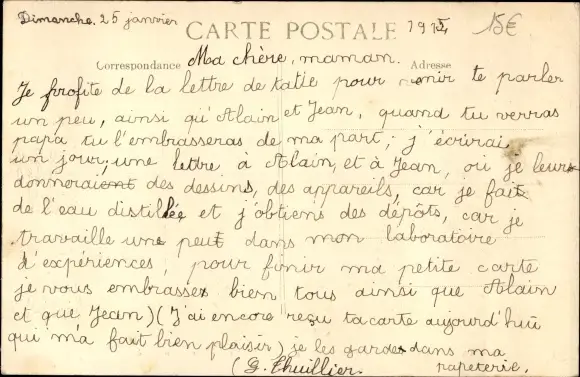 Dimanche. 25 janvier CARTE POSTALE 15€
Correspondance Ma chère, maman. Adresse
Je profite de la lettre de Katie pour venir te parler
un peu, ainsi qu'Alain et Jean, quand tu verras
papa tu l'embrasseras de ma part; j'écrirai
un jour; une lettre à Alain, et à Jean, où je leurs
donnerai des dessins, des appareils, car je fait
de l'eau distillée et j'obtiens des dépôts, car je
travaille une peut dans mon laboratoire
d'expériences, pour finir ma petite carte
je vous embrasses bien tous ainsi que Alain
et que Jean) (J'ai encore reçu ta carte aujourd'hui
qui m'a fait bien plaisir) je les gardes dans ma
papeterie.
(G. Thuillier.